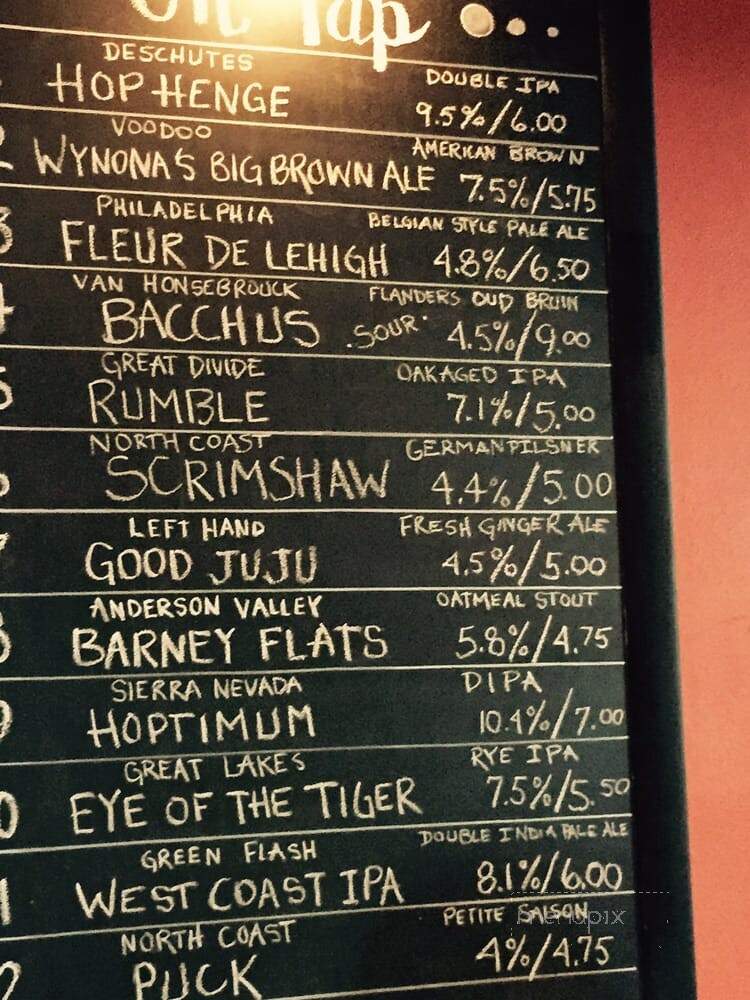 On Tap
DESCHUTES
HOP HENGE
DOUBLE IPA
9.5%/6.00
2
VOODOO
WYNONA'S BIG BROWN ALE
AMERICAN BROWN
7.5%/5.75
3
PHILADELPHIA
FLEUR DE LEHIGH
BELGIAN STYLE PALE ALE
4.8%/6.50
4
VAN HONSEBROUCK
BACCHUS .SOUR.
FLANDERS OUD BRUIN
4.5%/9.00
5
GREAT DIVIDE
RUMBLE
OAK AGED IPA
7.1%/5.00
NORTH COAST
SCRIMSHAW
GERMAN PILSNER
4.4%/5.00
7
LEFT HAND
GOOD JUJU
FRESH GINGER ALE
4.5%/5.00
8
ANDERSON VALLEY
BARNEY FLATS
OATMEAL STOUT
5.8%/4.75
9
SIERRA NEVADA
HOPTIMUM
DIPA
10.4%/7.00
0
GREAT LAKES
EYE OF THE TIGER
RYE IPA
7.5%/5.50
1
GREEN FLASH
WEST COAST IPA
DOUBLE INDIA PALE ALE
8.1%/6.00
2
NORTH COAST
PUCK
PETITE SAISON
4%/4.75
menupix